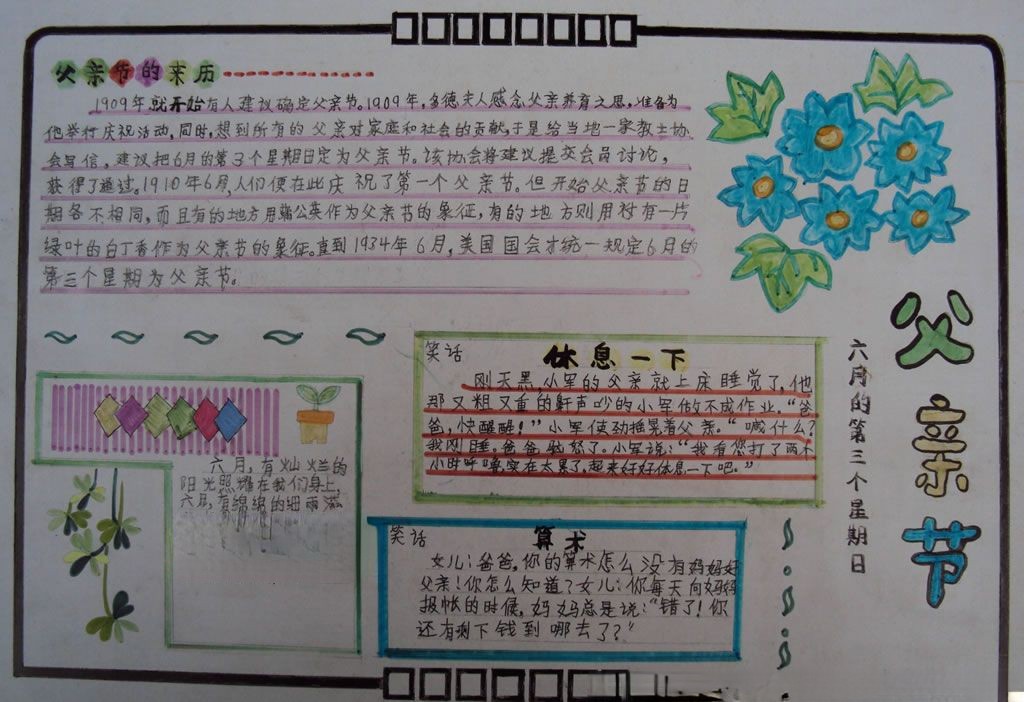 父亲节的来历
1909年就开始有人建议确定父亲节。1909年,多德夫人感念父亲养育之恩,准备为
他举行庆祝活动,同时,想到所有的父亲对家庭和社会的贡献,于是给当地一家教士协
会写信,建议把6月的第3个星期日定为父亲节。该协会将建议提交会员讨论,
获得了通过。1910年6月,人们便在此庆祝了第一个父亲节。但开始父亲节的日
期各不相同,而且有的地方用蒲公英作为父亲节的象征,有的地方则用衬有一片
绿叶的白丁香作为父亲节的象征。直到1934年6月,美国国会才统一规定6月的
第三个星期为父亲节。
父亲节
六月的第三个星期日
笑话
休息一下
刚天黑,小军的父亲就上床睡觉了,他
那又粗又重的鼾声吵的小军做不成作业。“爸
爸,快醒醒!”小军使劲摇晃着父亲。“喊什么?
我刚睡。爸爸恼怒了。小军说:“我看您打了两个
小时呼噜实在太累了,起来好好休息一下吧。”
六月,有灿烂的
阳光照耀在我们身上,
六月,有绵绵的细雨滋
笑话
算术
女儿:爸爸,你的算术怎么没有妈妈好
父亲!你怎么知道?女儿:你每天向妈妈
报帐的时候,妈妈总是说:“错了!你
还有剩下钱到哪去了?”